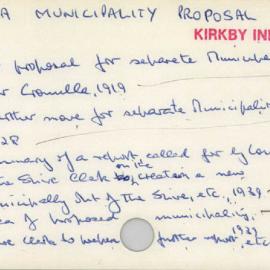 A MUNICIPALITY PROPOSAL
KIRKBY IN
proposal for separate Municipa
r Cronulla, 1919
urther move for separate Municipalit
28
mmary of a report, called for by Cou
the Shire Clerk on the creation a new
unicipality out of the Shire, etc., 1939
ea of proposed municipality,
re Clerk to prepare further report, etc 1939